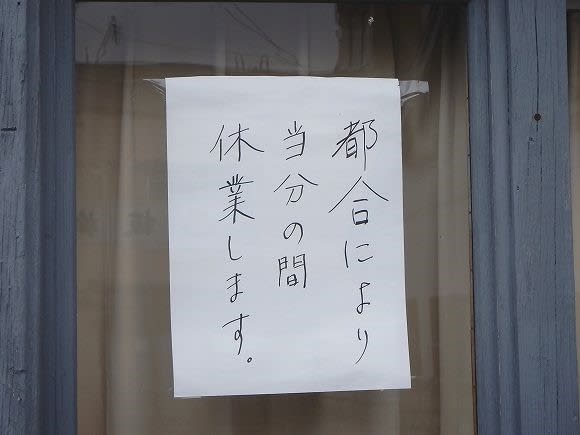 都合により
当分の間
休業します。